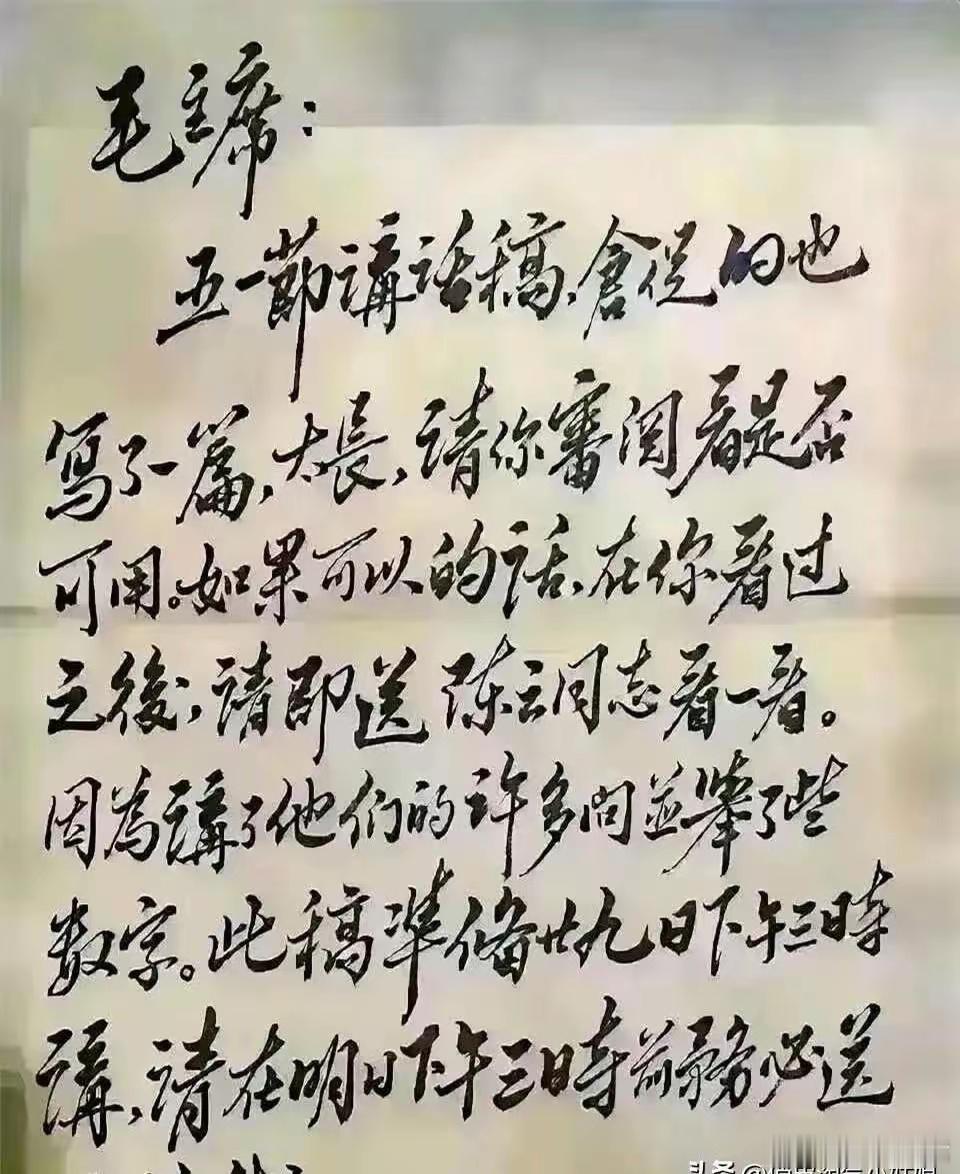 毛主席：
五一節講話稿、倉促的也
寫了一篇，太長，請你審閱看是否
可用。如果可以的話、在你看过
之後，請即送陈云同志看一看。
因為講了他们的许多问並舉了些
数字。此稿準备廿九日下午三时
講，请在明日下午三时前務必送
头条